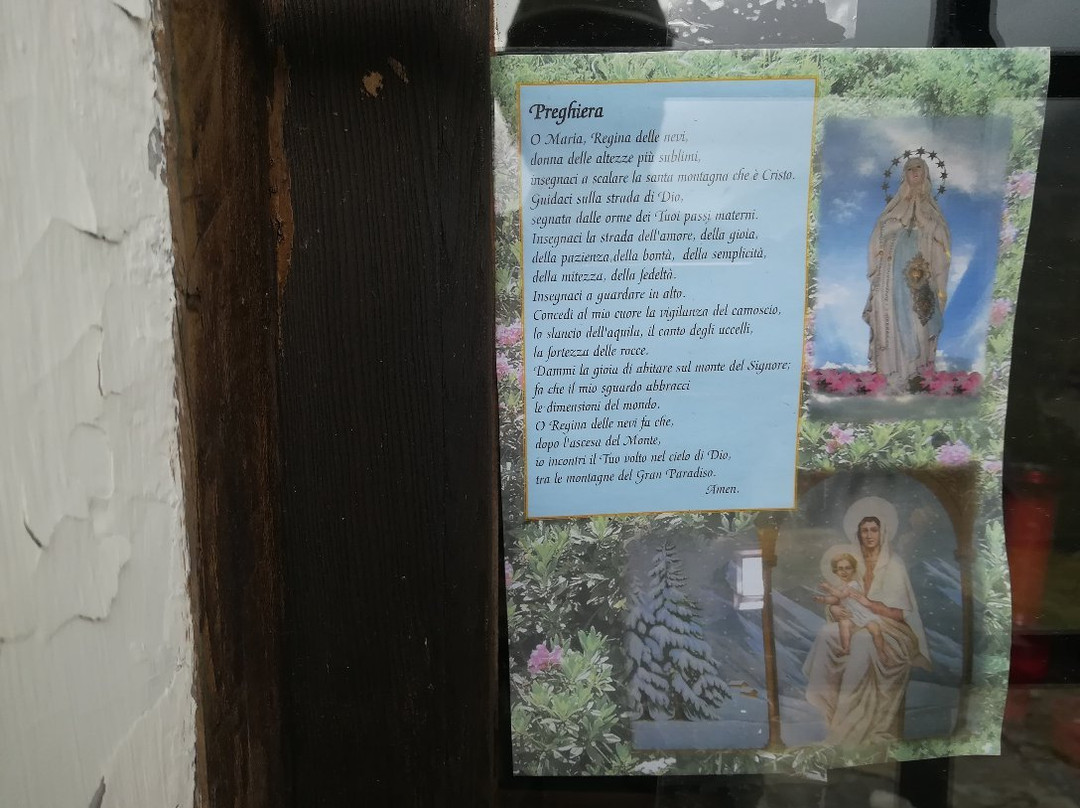 Preghiera
O Maria, Regina delle nevi,
donna delle altezze più sublimi,
insegnaci a scalare la santa montagna che è Cristo.
Guidaci sulla strada di Dio,
segnata dalle orme dei Tuoi passi materni.
Insegnaci la strada dell'amore, della gioia,
della pazienza,della bontà, della semplicità,
della mitezza, della fedeltà.
Insegnaci a guardare in alto.
Concedi al mio cuore la vigilanza del camoscio,
lo slancio dell'aquila, il canto degli uccelli,
la fortezza delle rocce.
Dammi la gioia di abitare sul monte del Signore;
fa che il mio sguardo abbracci
le dimensioni del mondo.
O Regina delle nevi fa che,
dopo l'ascesa del Monte,
io incontri il Tuo volto nel cielo di Dio,
tra le montagne del Gran Paradiso.
Amen.